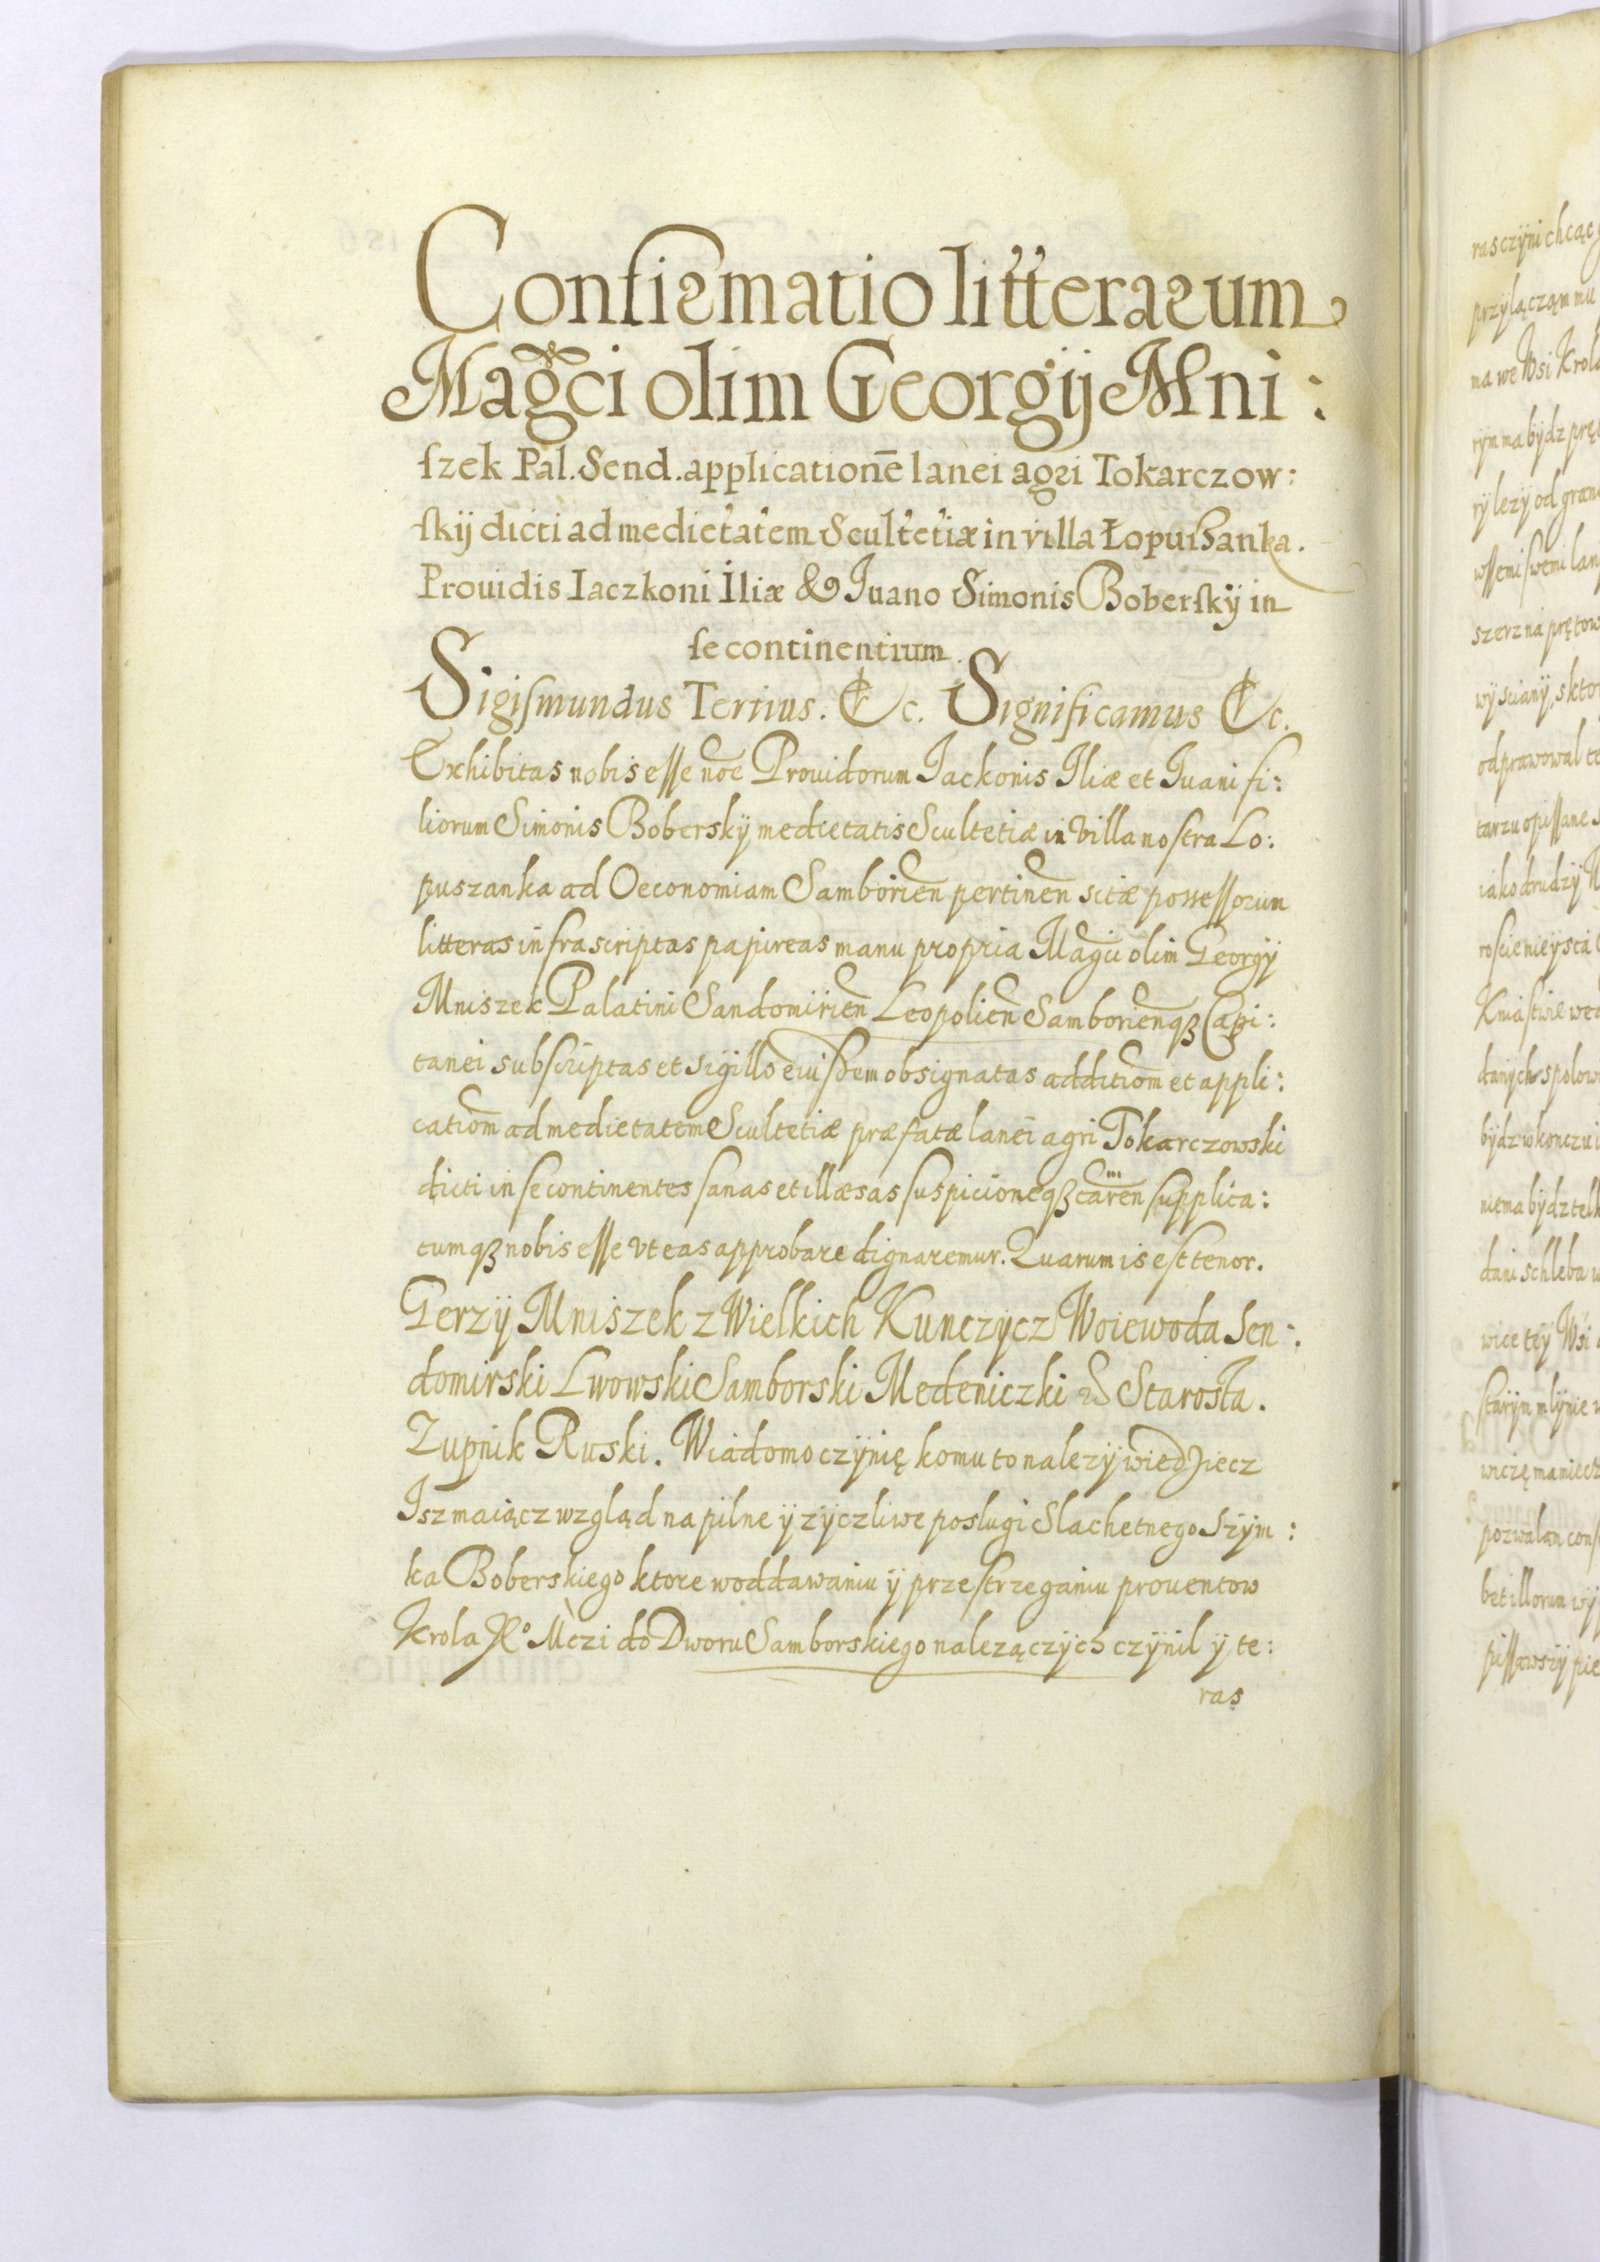 Confirmatio litterarum
Mag̃ci olim Georgij Mni:
szek Pal. Send. applicationē lanei agri Tokarczow:
skij dicti ad medietatem Scultetiæ in villa Łopuszanka.
Prouidis Iaczkoni Iliæ & Iuano Simonis Boberskÿ in
se continentium.
Sigismundus Tertius. &c. Significamus &c.
Exhibitas nobis esse noe Prouidorum Iackonis Iliæ et Iuani fi:
liorum Simonis Boberskÿ medietatis Scultetiæ in Villa nostra Lo:
puszanka ad Oeconomiam Samborien pertinen sitæ possessorum
litteras infrascriptas papireas manu propria Magci olim Georgÿ
Mniszek Palatini Sandomirien Leopolien Samborienqꝫ Capi:
tanei subscriptas et sigillo eiusdem obsignatas additiom et appli:
catiom ad medietatem Scultetiæ præfatæ lanei agri Tokarczowski
dicti in se continentes sanas et illæsas suspicioneqꝫ caren supplica:
tumqꝫ nobis esse vt eas approbare dignaremur. Quarum is est tenor.
Gerzÿ Mniszek z Wielkich Kunczycz Woiewoda Sen:
domirski Lwowski Samborski Medeniczki &c Starosta.
Zupnik Ruski. Wiadomo czÿnię komu to nalezÿ wiedziecz
Isz maiącz wzgląd na pilne ÿ zÿczliwe poslugi Slachetnego Szÿm:
ka Boberskiego ktore w oddawaniu ÿ przestrzeganiu prouentow
Krola Jº Mczi do Dworu Samborskiego nalezączÿch czÿnil ÿ te:
ras
rasczÿni chcąc
przÿlączam mu
na we Wsi Krola
rÿm ma bÿdz
rÿ lezÿ od
szerz na prętow
odprawowal
tarzu opissane
iako drudzÿ
danÿch spolow
nie ma bÿdz
dani schleba
wice teÿ Wsi
starÿm mlÿnie
pozwalam
bet illorum